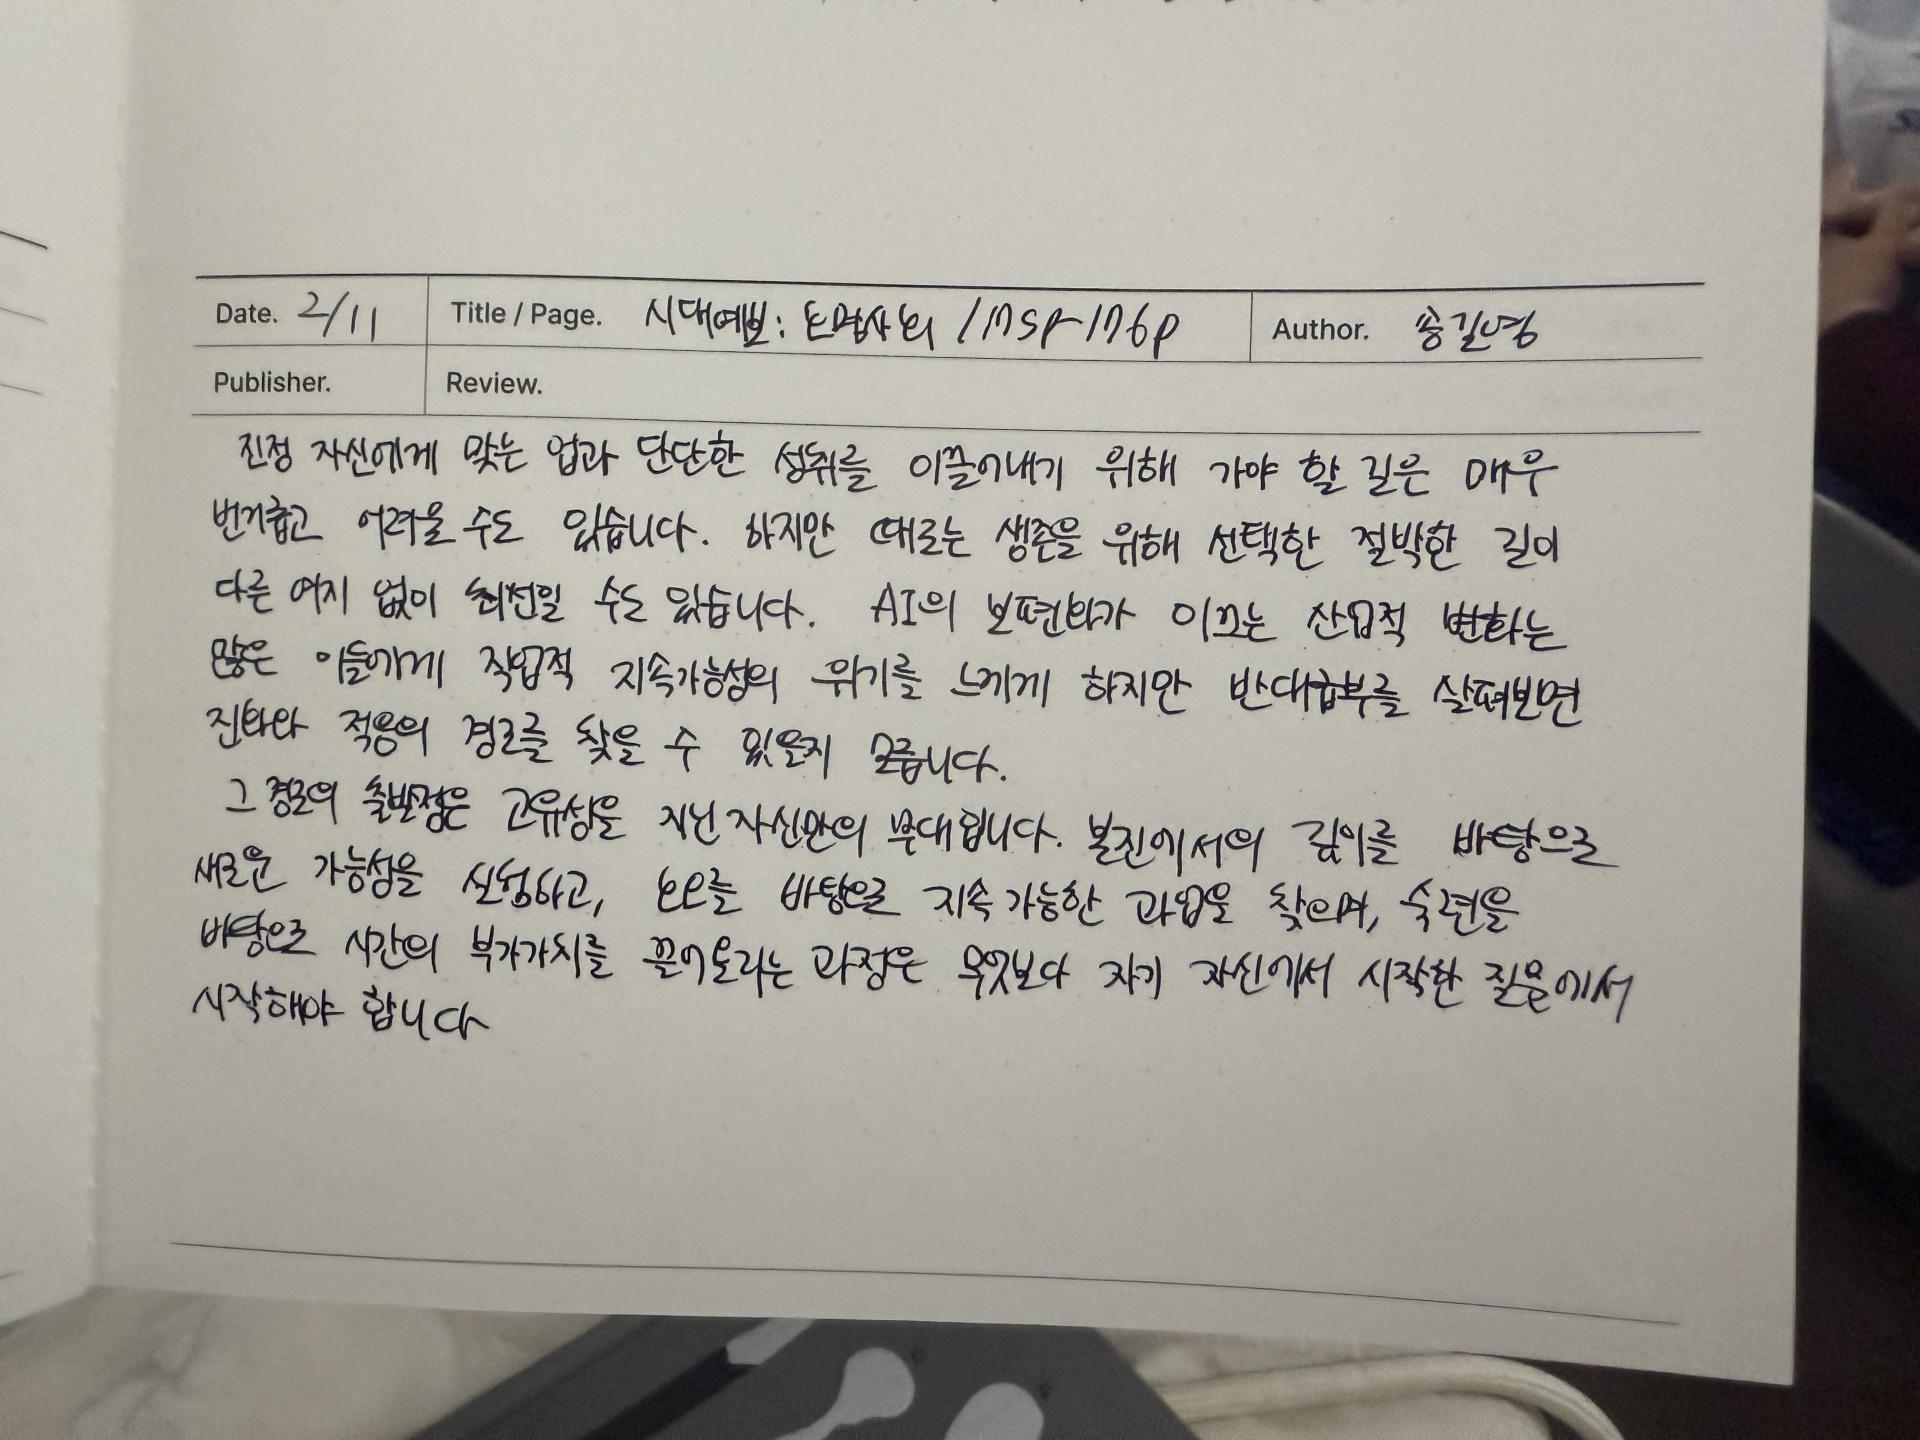 Date. 2/11 Title / Page. 시대예보: 호명사회 / 175p-176p Author. 송길영
Publisher. Review.
진정 자신에게 맞는 업과 단단한 성취를 이끌어내기 위해 가야 할 길은 매우
번거롭고 어려울 수도 있습니다. 하지만 때로는 생존을 위해 선택한 절박한 길이
다른 여지 없이 최선일 수도 있습니다. AI의 보편화가 이끄는 산업적 변화는
많은 이들에게 직업적 지속가능성의 위기를 느끼게 하지만 반대급부를 살펴보면
진화와 적응의 경로를 찾을 수 있을지 모릅니다.
그 경로의 출발점은 고유성을 지닌 자신만의 무대입니다. 본진에서의 깊이를 바탕으로
새로운 가능성을 실험하고, 바탕으로 지속가능한 과업을 찾으며, 숙련을
바탕으로 시간의 부가가치를 끌어올리는 과정은 무엇보다 자기 자신에서 시작한 질문에서
시작해야 합니다